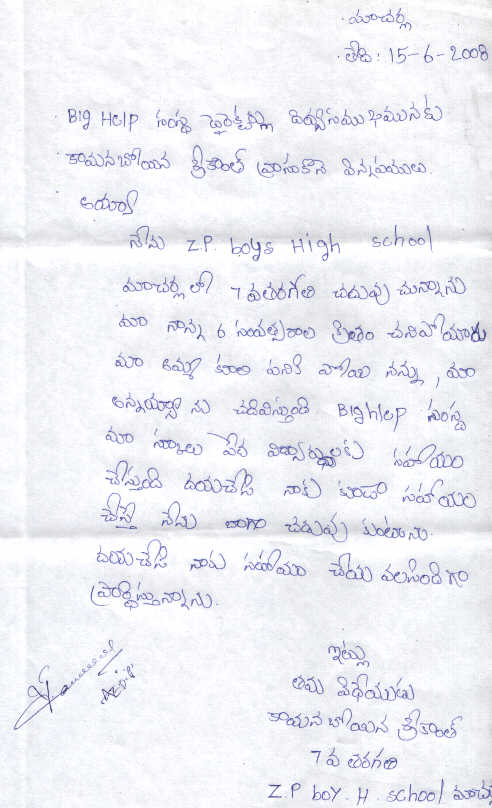 మాచర్ల
తేది: 15-6-2008
Big Help సంస్థ డైరెక్టర్లు దివ్యసముఖమునకు
కామనబోయిన శ్రీకాంత్ వ్రాసుకొనె విన్నపములు.
అయ్యా
నేను Z.P. boys High school
మాచర్ల లో 7 వతరగతి చదువు చున్నాను
మా నాన్న 6 సంవత్సరాల క్రితం చనిపోయారు
మా అమ్మ కూలి పనికి పోయి నన్ను, మా
అన్నయ్య ను చదివిస్తుంది BigHlep సంస్థ
మా స్కూలు పేద విద్యార్థులకు సహాయం
చేస్తుంది దయచేసి నాకు కూడా సహాయం
చేస్తే నేను బాగా చదువు కుంటాను.
దయచేసి నాకు సహాయం చేయ వలసిందిగా
ప్రార్థిస్తున్నాను.
ఇట్లు
తమ విధేయుడు
కామన బోయిన శ్రీకాంత్
7 వ తరగతి
Z.P boy. H. school మాచ